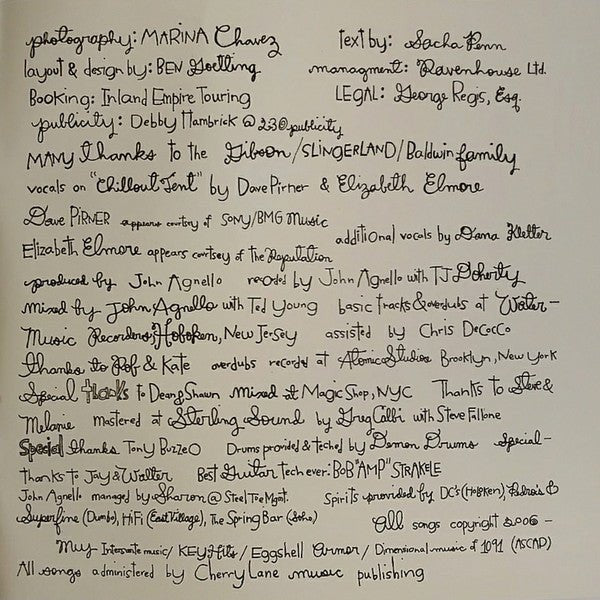 photography: MARINA Chavez text by: Sacha Penn
layout & design by: BEN Goetting managment: Ravenhouse Ltd.
Booking: Inland Empire Touring LEGAL: George Regis, Esq.
publicity: Debby Hambrick @ 230 publicity
MANY thanks to the Gibson/SLINGERLAND/Baldwin family
vocals on "Chillout Tent" by Dave Pirner & Elizabeth Elmore
Dave PIRNER appears courtsy of SONY/BMG Music
additional vocals by Dana Kletter
Elizabeth Elmore appears courtsey of the Reputation
produced by John Agnello recorded by John Agnello with TJ Doherty
mixed by John Agnello with Ted Young basic tracks & overdubs at Water-
Music Recorders, Hoboken, New Jersey assisted by Chris DeCocco
thanks to Rob & Kate overdubs recorded at Atomic Studios Brooklyn, New York
Special thanks to Dean & Shawn mixed at Magic Shop, NYC Thanks to Steve &
Melanie mastered at Sterling Sound by Greg Calbi with Steve Fallone
Special thanks Tony Buzzeo Drums provided & teched by Demon Drums special-
thanks to Jay & Walter Best Guitar tech ever: BOB "AMP" STRAKELE
John Agnello managed by Sharon @ Steel Toe Mgmt. Spirits provided by DC's (Hoboken), Pedro's &
Superfine (Dumbo), HiFi (East Village), The Spring Bar (Soho) All songs copyright 2006 -
Muy Interesante music/ KEY Hits/ Eggshell Armor/ Dimensional music of 1091 (ASCAP)
All songs administered by Cherry Lane music publishing